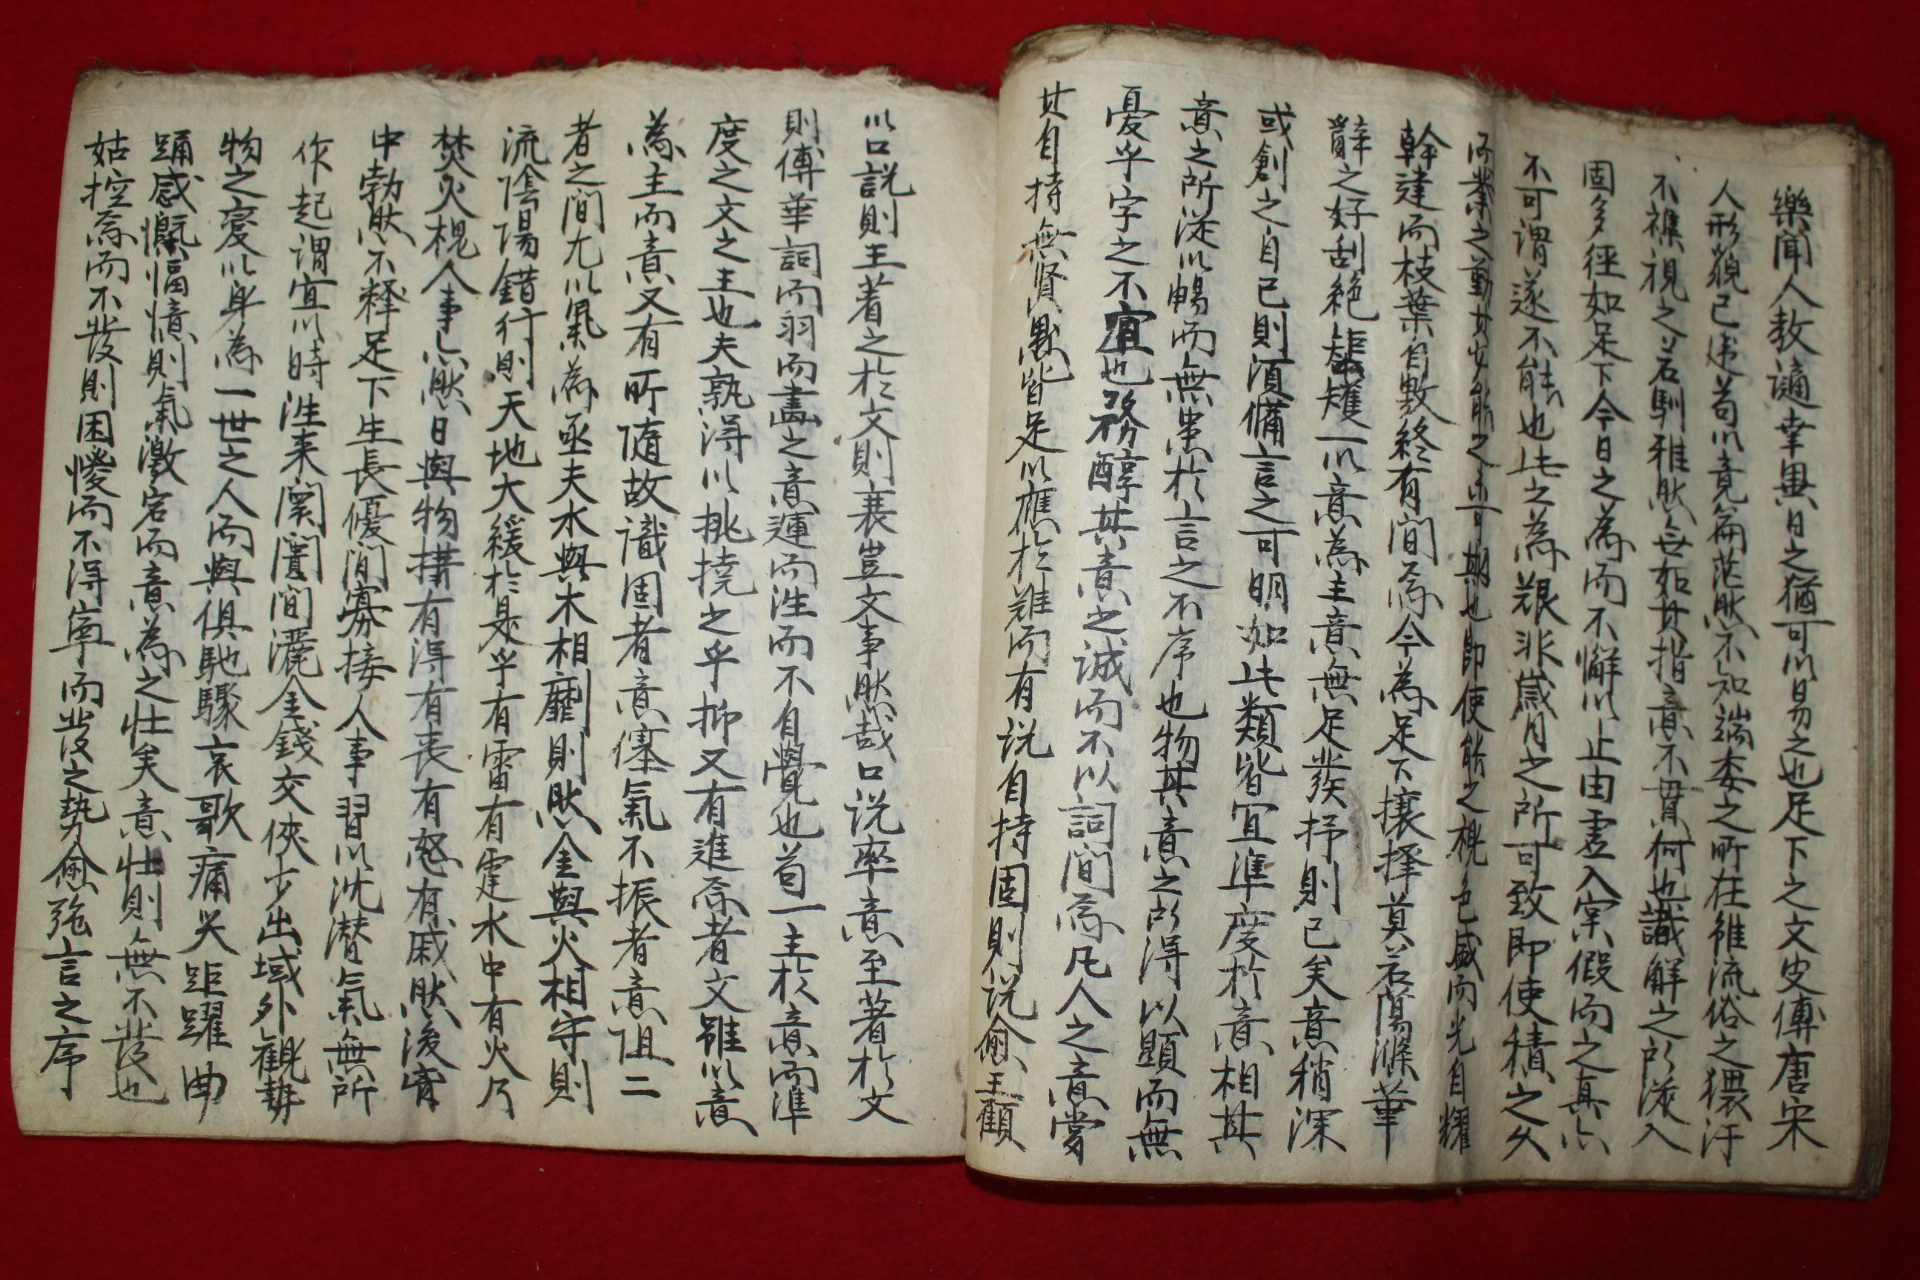 樂聞人教謫幸異日之猶可以易之也足下之文皮傅唐宋
人形貌已逮苟以竟篇茫然不知端委之所在雖流俗之猥汗
不襍視之若馴雅然無如其指意不貫何也識解之所淺入
固多徑如足下今日之為而不懈以止由虛入宲假而之真亦
不可謂遂不能也此之為艱非歲月之所可致即使積之久
而業之勤其必能之亦可期也即使能之槐色盛而光自耀
幹達而枝葉自敷終有間焉今為足下攘擇莫若陽滌華
辭之好刮絶矩矱一以意為主意無足發抒則已矣意稍深
或創之自己則須備言之可明如此類皆宜準度於意相其
意之所從以暢而無患於言之不序也物其意之所得以顯而無
憂乎字之不宜也務醇其意之誠而不以詞間焉凡人之意嘗
其自持無賢愚皆足以應於難而有说自持固則说愈王顧
以口説則王著之於文則衰豈文事然哉口说率意至著於文
則傅華詞而羽而畵之意運而泩而不自覺也苟一主於意而準
度之文之主也夫孰得以挑撓之乎抑又有進焉者文雖以意
為主而意又有所隨故識固者意僿氣不振者意沮二
者之間尤以氣為亟夫水與木相靡則然金與火相守則
流陰陽錯行則天地大緩於是乎有雷有霆水中有火乃
焚火槐人事亦然日與物搆有得有喪有怒有戚然後肻
中勃然不释足下生長優間寡接人事習以沈潜氣無所
作起謂宜以時泩来闤闠間灑金錢交俠少出域外觀勢
物之變以身為一世之人而與俱馳驟哀歌痛哭距躍曲
踊感慨愊憶則氣激宕而意為之壮矣意壮則無不發也
姑控焉而不發則困懓而不得寧而發之勢愈強言之序